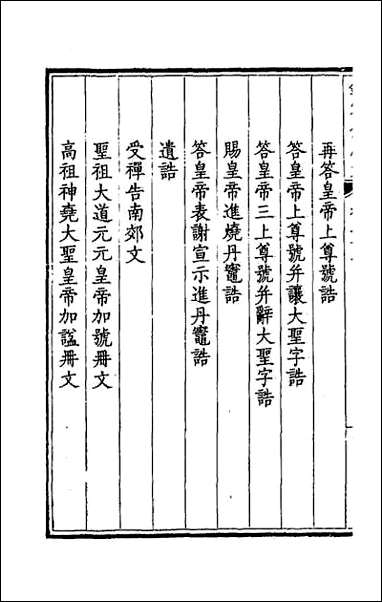 再答皇帝上尊號誥
答皇帝上尊號并讓大聖字誥
答皇帝三上尊號并辭大聖字誥
賜皇帝進燒丹竈誥
答皇帝表謝宣示進丹竈誥
遺誥
受禪告南郊文
聖祖大道元元皇帝加號冊文
高祖神堯大聖皇帝加謚冊文